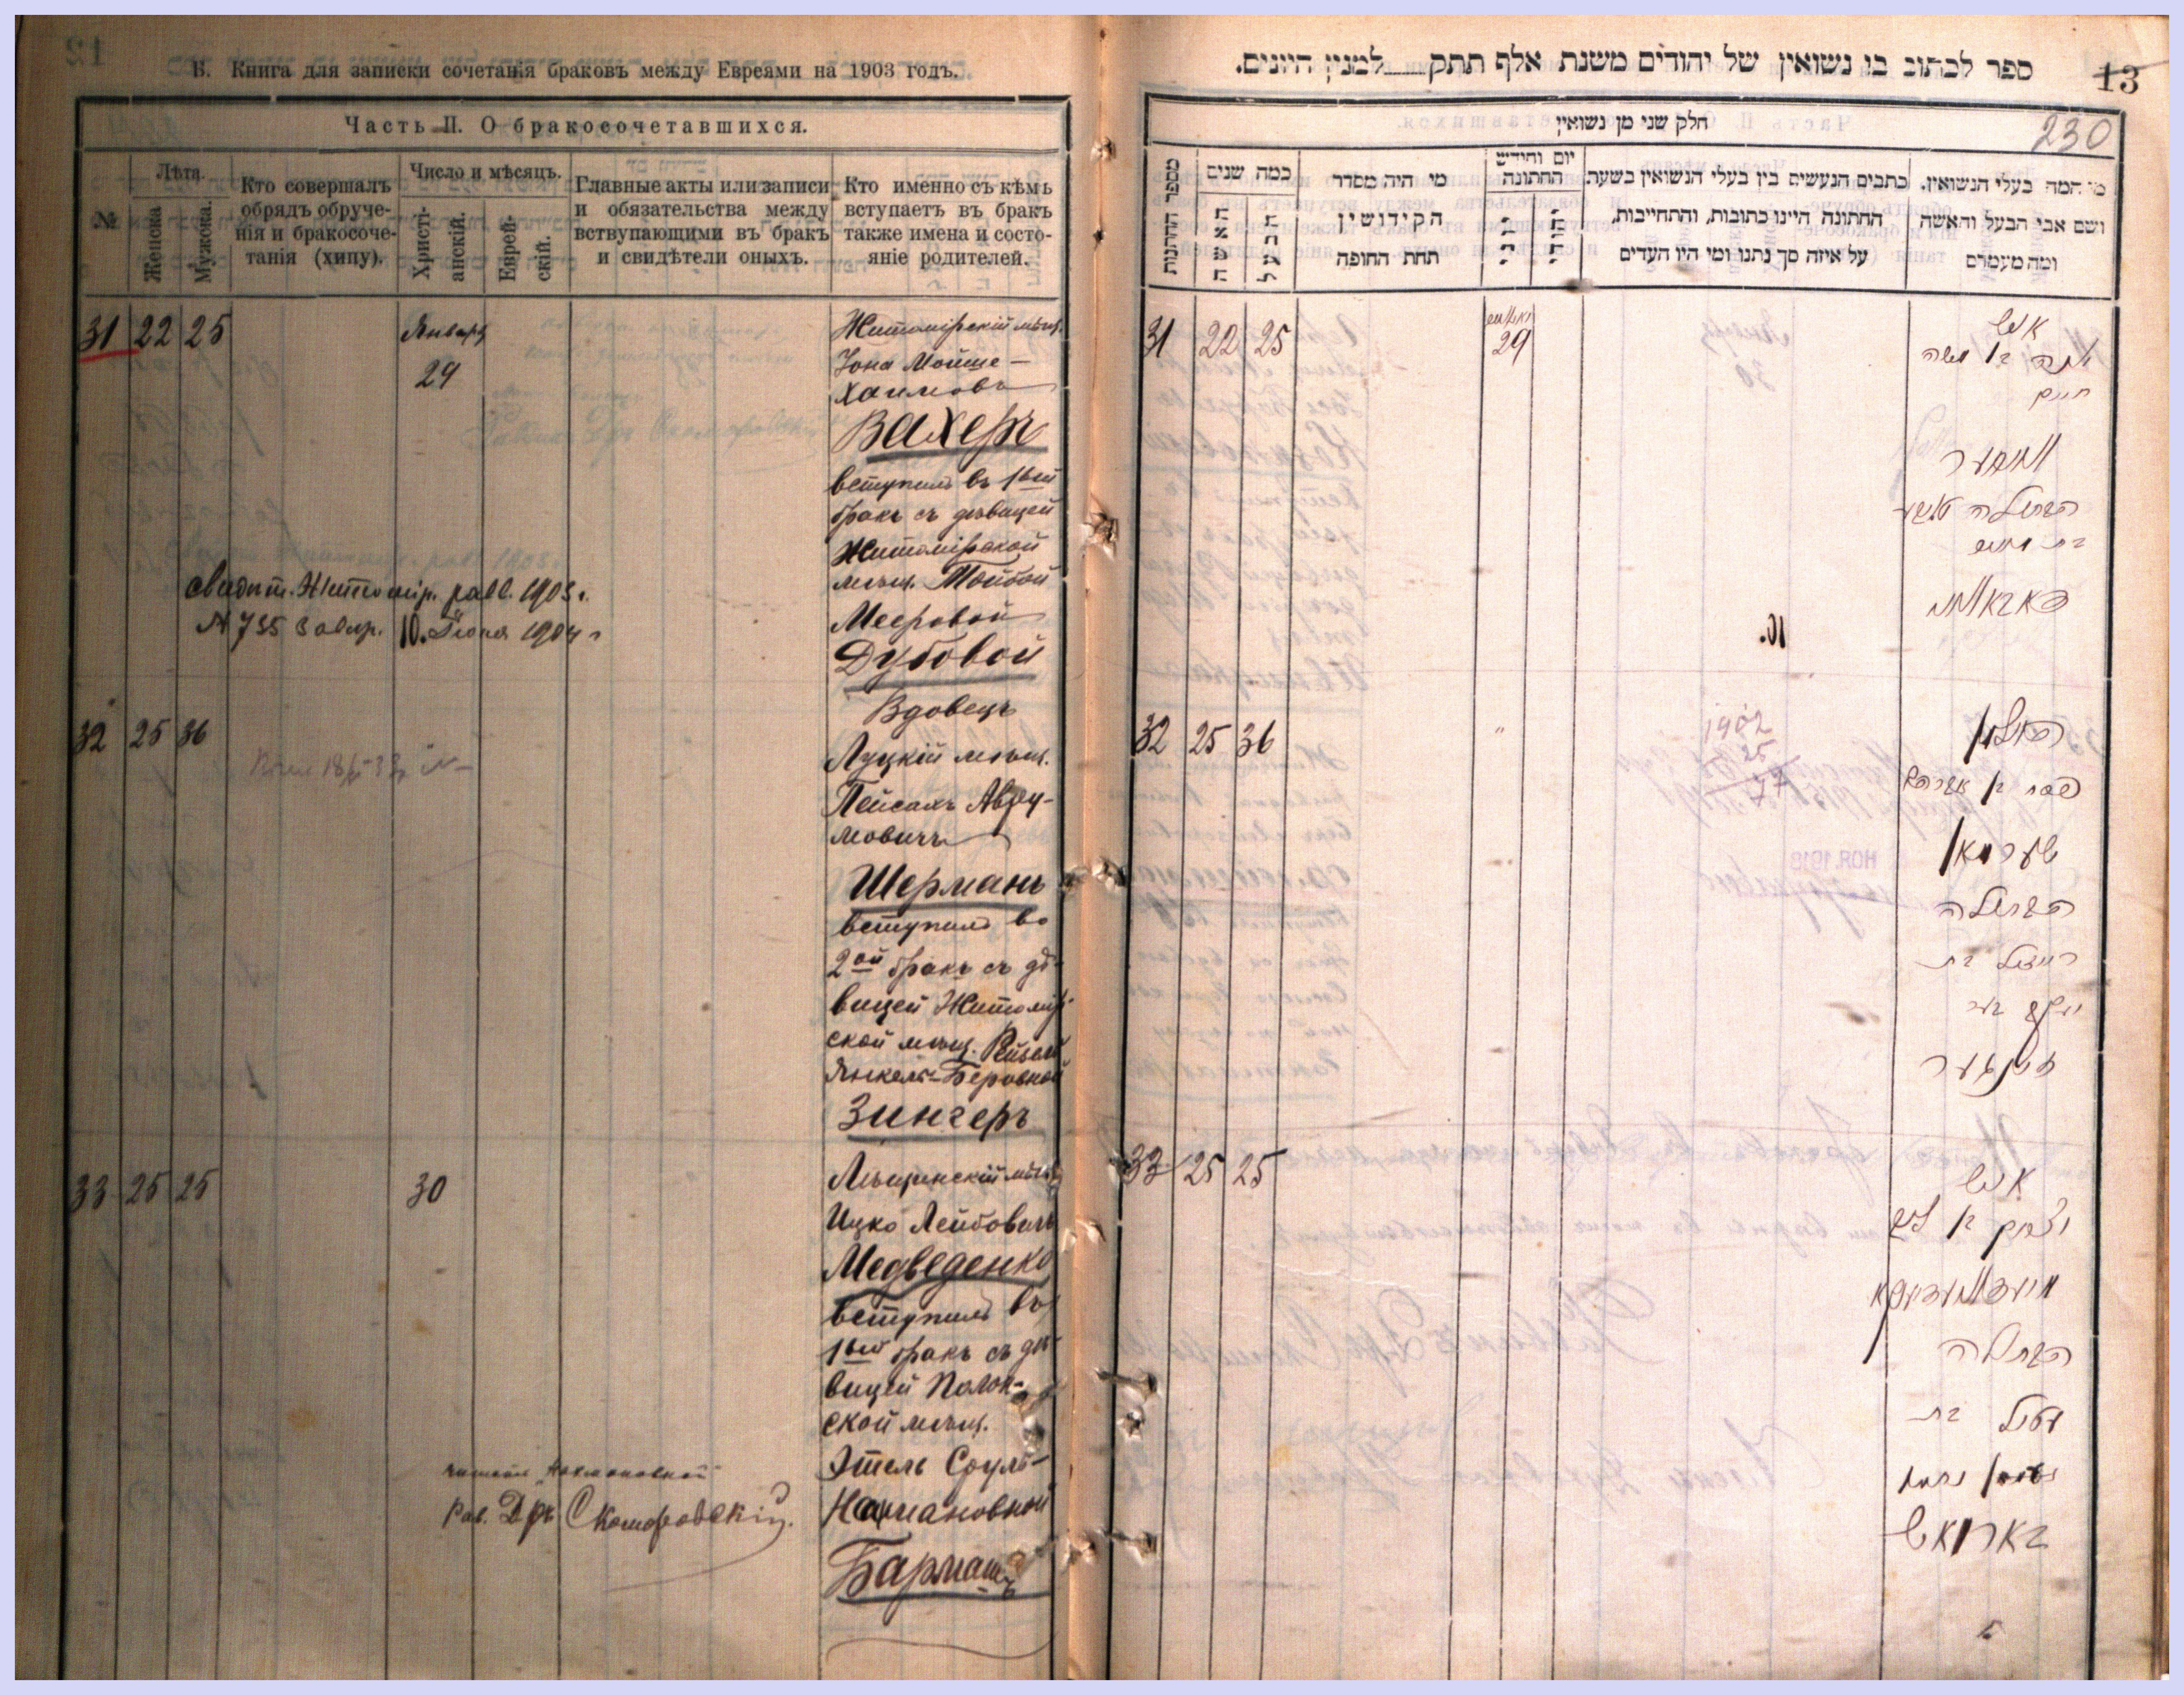 Б. Книга для записки сочетанія браковъ между Евреями на 1903 годъ.
Часть II. О бракосочетавшихся.
№
Лѣта.
Женска
Мужеска.
Кто совершалъ
обрядъ обруче-
нія и бракосоче-
танія (хипу).
Число и мѣсяцъ.
Христі-
анскій.
Еврей-
скій.
Главные акты или записи
и обязательства между
вступающими въ бракъ
и свидѣтели оныхъ.
Кто именно съ кѣмъ
вступаетъ въ бракъ
также имена и состо-
яніе родителей.
31 22 25
Января
29
Житомірскій мѣщ.
Іона Мойше-
Хаимовъ
Вахеръ
вступилъ въ 1ый
бракъ съ дѣвицей
Житомірской
мѣщ. Тойбой
Мееровой
Дубовой
Свидѣт. Житомір. равв. 1903 г.
№ 755 10. Іюня 1904 г
32 25 36
Вдовецъ
Луцкій мѣщ.
Пейсахъ Авру-
мовичъ
Шерманъ
вступилъ во
2ой бракъ съ дѣ-
вицей Житомір-
ской мѣщ. Рейзей
Янкель-Беровной
Зингеръ
33 25 25
30
Ицко Лейбовичъ
Медведенко
вступилъ въ
1ый бракъ съ дѣ-
вицей Полон-
ской мѣщ.
Этель Сруль-
Нахмановной
Бармашъ
Рав. Др. Скомаровскій.
ספר לכתוב בו נשואין של יהודים משנת אלף תתק___למנין היונים.
13
230
חלק שני מן נשואין
מספר החתונות
כמה שנים
האשה
הבעל
מי היה מסדר
הקידושין
תחת החופה
יום וחודש
החתונה
יוני
יהודי
כתבים הנעשים בין בעלי הנשואין בשעת
החתונה היינו כתובות, והתחייבות,
על איזה סך נתנו ומי היו העדים
מי המה בעלי הנשואין.
ושם אבי הבעל והאשה
ומה מעמדם
31 22 25
29
יונה בן משה
חיים
וואחער
הבתולה טויבע
32 25 36
1902
האלמן
פסח בן אברהם
שערמאן
הבתולה
רייזל בת
יעקב בער
זינגער
33 25 25
יצחק בן ליב
מעדוועדענקא
הבתולה
עטיל בת
בארמאש